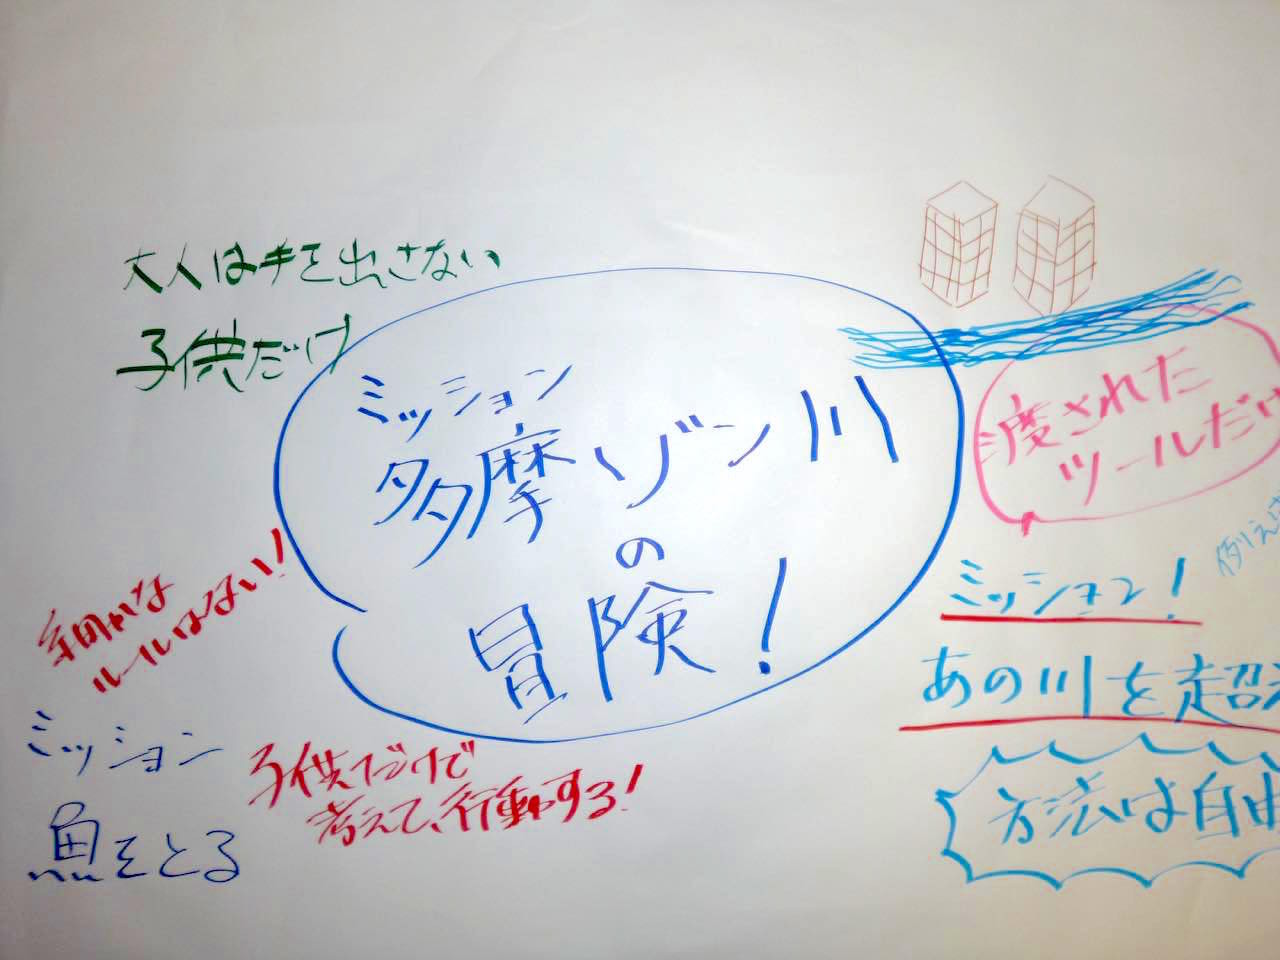 大人は手を出さない
子供だけ
ミッション
多摩ゾン川
の
冒険!
渡された
ツールだけ
例えば
細かな
ルールはない!
ミッション
魚をとる
子供だけで
考えて、行動する!
ミッション!
あの川を超え
方法は自由